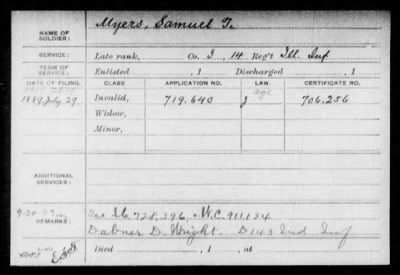 NAME OF SOLDIER: Myers, Samuel T.
SERVICE: Late rank, Co. I, 14 Reg't Ill. Inf
TERM OF SERVICE: Enlisted , 1 Discharged , 1
DATE OF FILING. CLASS APPLICATION NO. LAW. CERTIFICATE NO.
age
1889 July 29 Invalid, 719.640 J 706.256
Widow,
Minor,
ADDITIONAL SERVICES:
9-30-29 See 728,396, W.C. 911,134
REMARKS: Dabner D. Wright. D 143 Ind Inf
Died , 1 , at